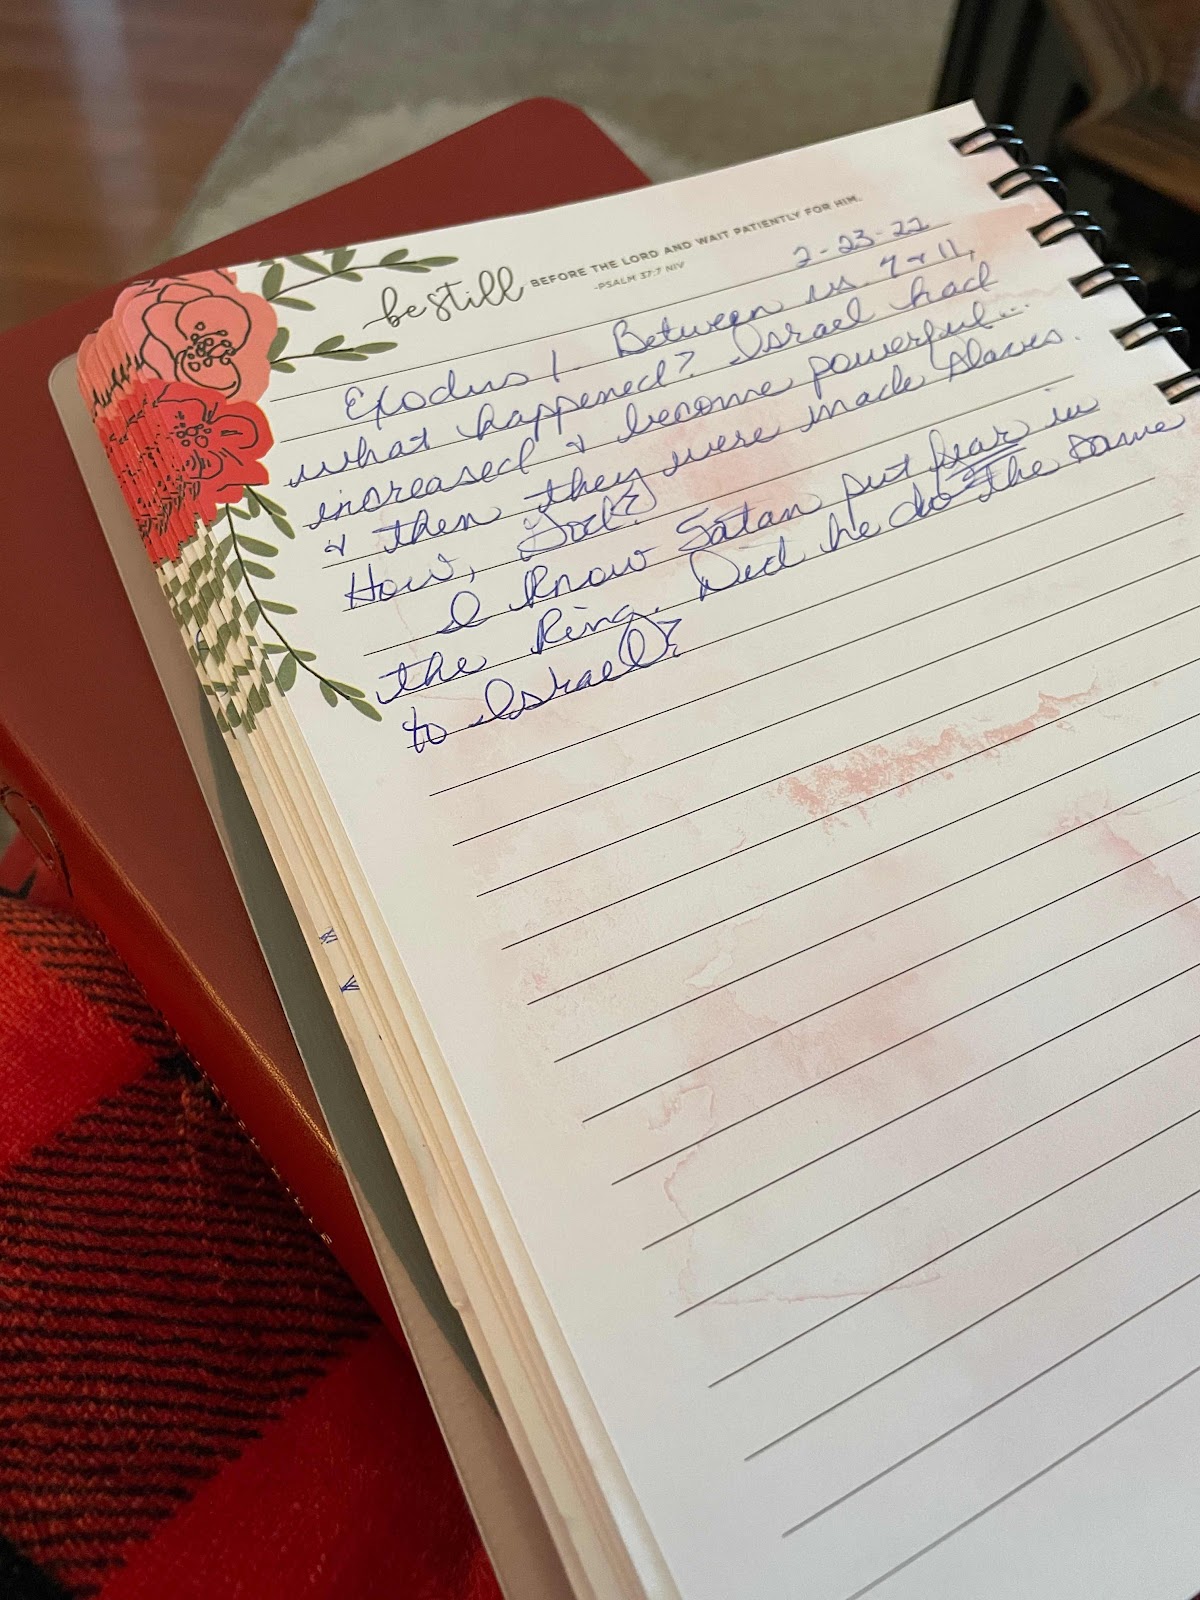 be still BEFORE THE LORD AND WAIT PATIENTLY FOR HIM.
-PSALM 37:7 NIV
2-23-22
Exodus 1. Between vs. 7 & 11,
what happened? Israel had
increased & become powerful...
& then they were made slaves.
How, God?
I know Satan put fear in
the king. Did he do the same
to Israel?